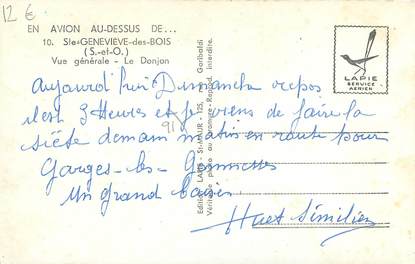 12 €
EN AVION AU-DESSUS DE...
10. Ste-GENEVIÈVE-des-BOIS
(S.-et-O.)
Vue générale - Le Donjon
LAPIE
SERVICE
AÉRIEN
Editions LAPIE - St-MAUR - 125, Garibaldi
Véritable photo au bromure - Reprod. interdite.
aujourd'hui Dimanche repos
il est 3 Heures et je viens de faire la
siéte demain matin en route pour
Garges-les-Gonnesses
un grand baiser
Huet Similien
91